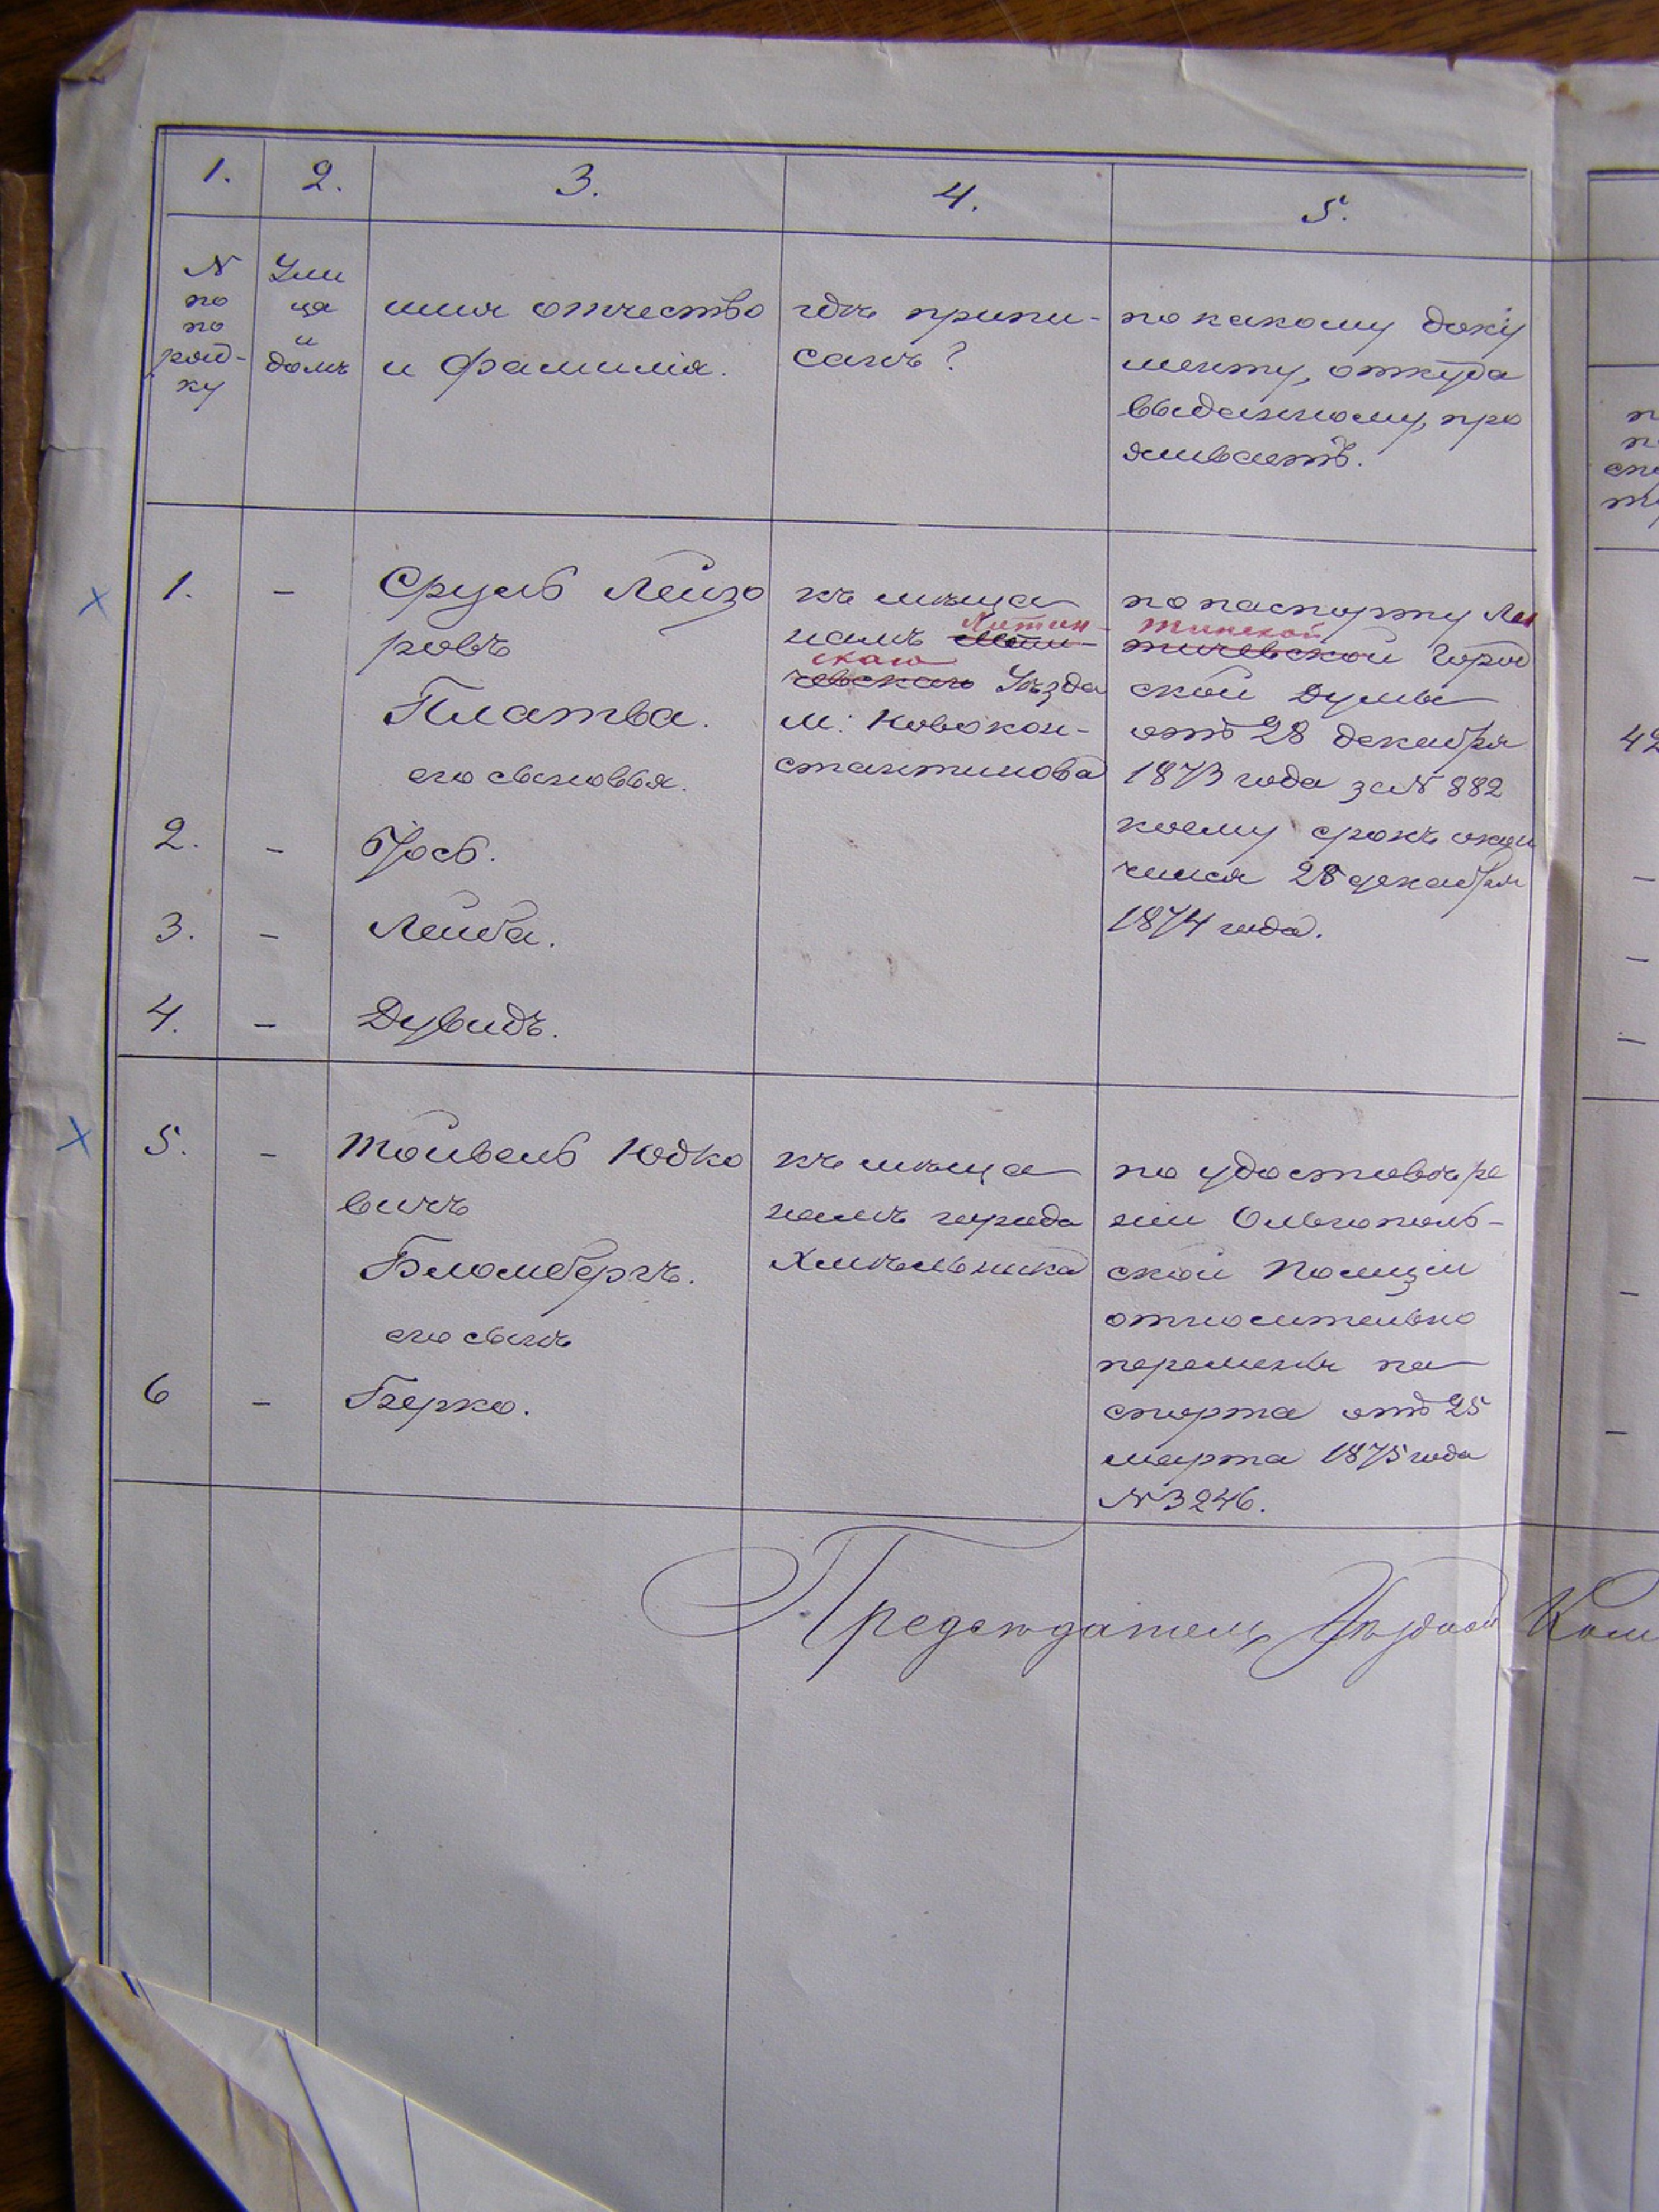 1.
2.
3.
4.
5.
N
по
по
ряд-
ку
Ули
ца
и
домъ
имя отчество
и фамилія.
гдѣ припи-
санъ?
по какому доку
менту, откуда
выданному, про
живаетъ.
1.
-
Сруль Лейзо
ровъ
Платва.
его сыновья.
къ мѣща
намъ Лети-
Литин-
чевскаго Уѣзда
скаго
м: Новокон-
стантинова
по паспорту Ли
тинской
тичевской Город
ской Думы
отъ 28 декабря
1873 года за N 882
коему срокъ окон
чился 28 декабря
1874 года.
2.
-
Іось.
3.
-
Лейба.
4.
-
Дувидъ.
5.
-
Тойвель Юдко
вичъ
Бломбергъ.
его сынъ
къ мѣща
намъ города
Хмѣльника
по удостовѣре
нію Ольгополь-
ской Полиціи
относительно
перемены па
спорта отъ 25
марта 1875 года
N 3246.
6
-
Берко.
Предсѣдатель Уѣздной Ком